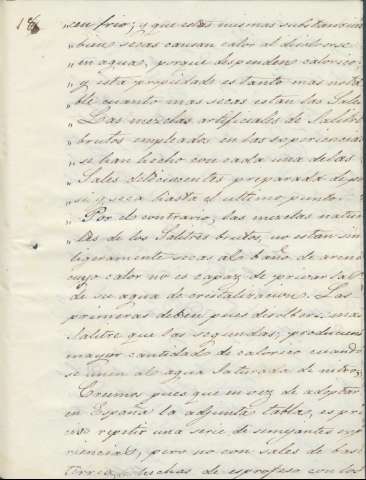 18
„ cen frio; y que estas mismas substancias
„ bien secas causan calor al disolverse
„ en agua, porque desprenden calorico,
„ y esta propiedad es tanto mas nota
„ ble cuanto mas secas estan las Sales.
„ Las mezclas artificiales de Salitres
„ brutos empleados en las experiencias
„ se han hecho con cada una de las
„ Sales deliquescentes preparada de por
„ sí y seca hasta el ultimo punto.
„ Por el contrario, las mezclas natu
„ les de los Salitres brutos, no estan sin
ligeramente secas al baño de arena
cuyo calor no es capaz de privar las
de su agua de cristalizacion. Las
primeras deben pues disolber mas
salitre que las segundas, producien
mayor cantidad de calorico cuando
se unen al agua saturada de nitro.
Creemos pues que en vez de adoptar
en España la adjunta tabla, es pre
ciso repetir una serie de semejantes expe
riencias, pero no con sales de base
terrea hechas de esprofeso con los